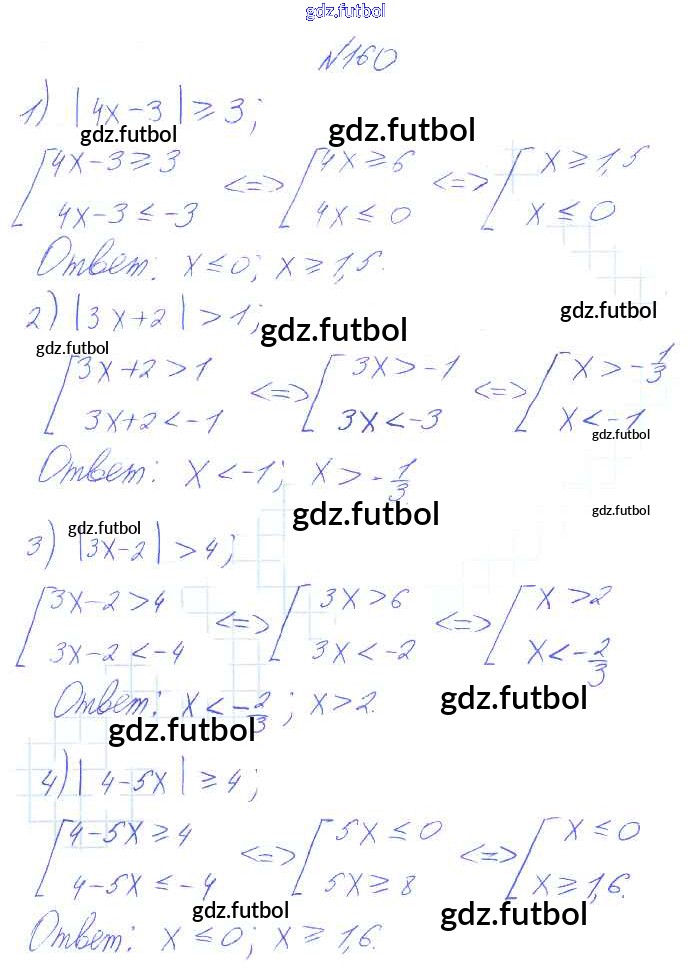 gdz.futbol
№160
1) |4x-3| ≥ 3;
gdz.futbol gdz.futbol
[4x-3 ≥ 3 <=> [4x ≥ 6 <=> [x ≥ 1,5
4x-3 ≤ -3 4x ≤ 0 x ≤ 0
Ответ: x ≤ 0; x ≥ 1,5.
2) |3x+2| > 1;
gdz.futbol gdz.futbol gdz.futbol
[3x+2 > 1 <=> [3x > -1 <=> [x > -1/3
3x+2 < -1 3x < -3 x < -1
gdz.futbol
Ответ: x < -1; x > -1/3.
gdz.futbol gdz.futbol gdz.futbol
3) |3x-2| > 4;
[3x-2 > 4 <=> [3x > 6 <=> [x > 2
3x-2 < -4 3x < -2 x < -2/3
Ответ: x < -2/3; x > 2.
gdz.futbol gdz.futbol
4) |4-5x| ≥ 4;
[4-5x ≥ 4 <=> [5x ≤ 0 <=> [x ≤ 0
4-5x ≤ -4 5x ≥ 8 x ≥ 1,6.
gdz.futbol gdz.futbol
Ответ: x ≤ 0; x ≥ 1,6.